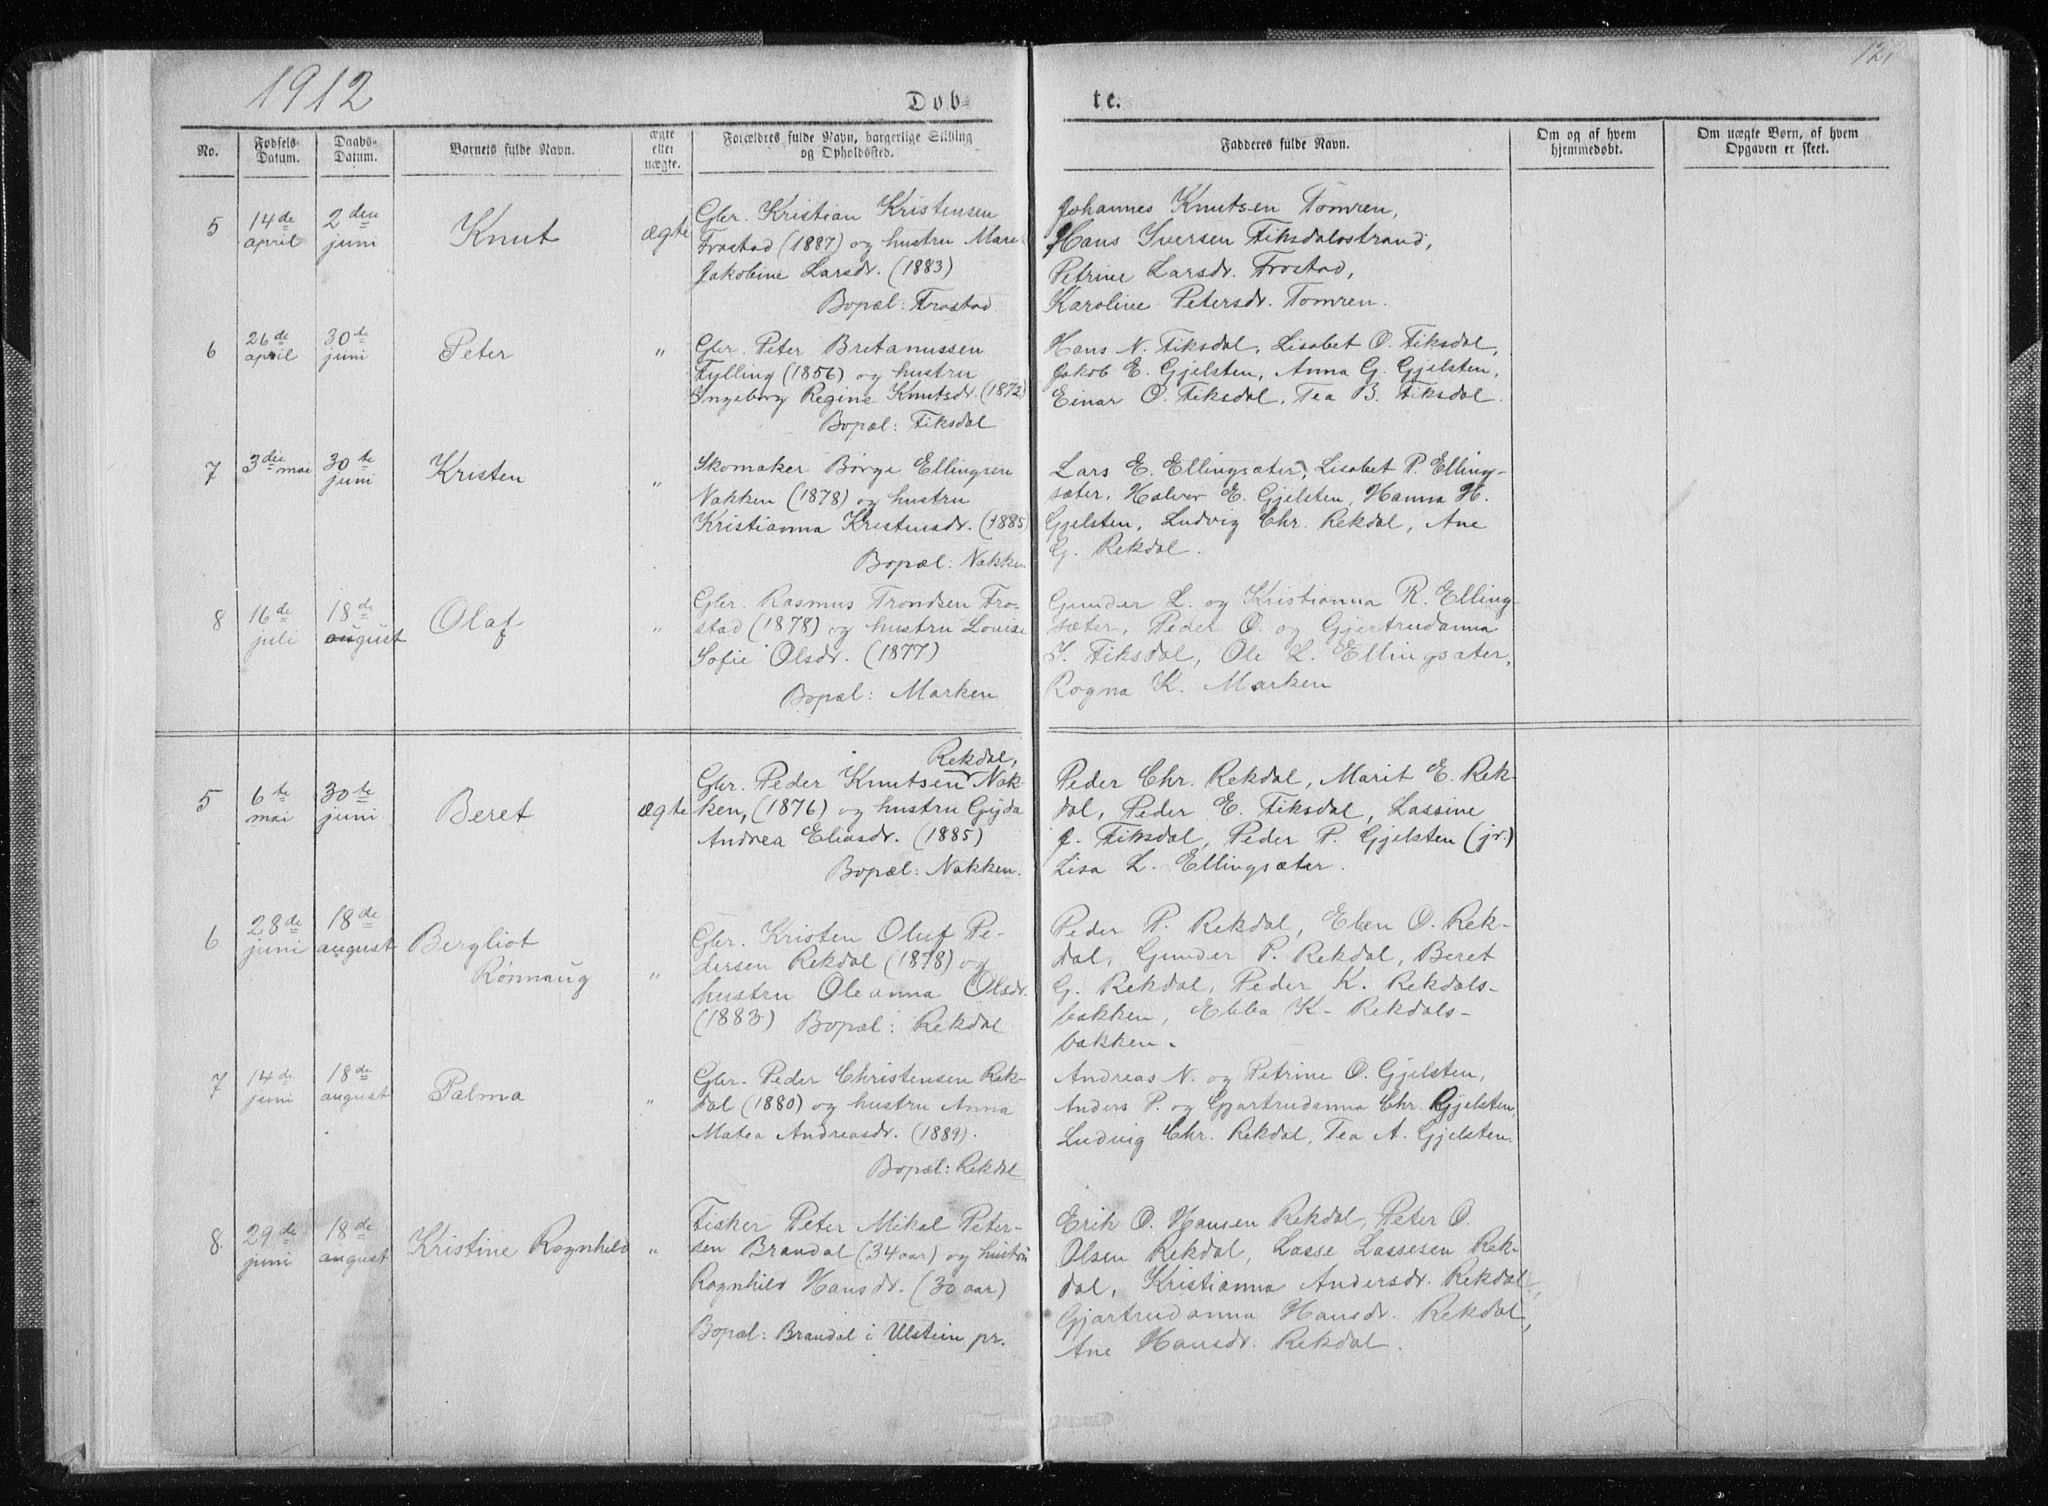 1912
12,
Døb-
te.
No.
Fødsels-
Datum.
Daabs-
Datum.
Barnets fulde Navn.
ægte
eller
uægte.
Forældres fulde Navn, borgerlige Stilling
og Opholdssted.
Fadderes fulde Navn.
Om og af hvem
hjemmedøbt.
Om uægte Børn, af hvem
Opgaven er skeet.
5
14de
april
2den
juni
Knut
ægte
Gbr. Kristian Kristensen
Frostad (1887) og hustru Mare
Jakobine Larsdr. (1883)
Bopæl: Frostad
Johannes Knutsen Tomren,
Hans Iversen Fiksdalsstrand,
Petrine Larsdr. Frostad,
Karoline Petersdr. Tomren.
6
26de
april
30te
juni
Peter
"
Gbr. Peter Britanussen
Fylling (1856) og hustru
Ingeborg Regine Knutsdr. (1872)
Bopæl: Fiksdal
Hans N. Fiksdal, Lisabet O. Fiksdal,
Jakob E. Gjelsten, Anna G. Gjelsten,
Einar O. Fiksdal, Tea B. Fiksdal.
7
3die mai
30te
juni
Kristen
"
Skomaker Børge Ellingsen
Nakken (1878) og hustru
Kristianna Kristensdr. (1885)
Bopæl: Nakken
Lars E. Ellingsæter, Lisabet P. Elling-
sæter, Halvor E. Gjelsten, Hanna H.
Gjelsten, Ludvig Chr. Rekdal, Ane
G. Rekdal.
8
16de
juli
18de
august
Olaf
"
Gbr. Rasmus Trondsen Fro-
stad (1878) og hustru Louise
Sofie Olsdr. (1877)
Bopæl: Marken
Gunder L. og Kristianna R. Elling-
sæter, Peder O. og Gjertrudanna
I. Fiksdal, Ole L. Ellingsæter,
Ragna K. Marken
5
6te
mai
30te
juni
Beret
ægte
Rekdal,
Gbr. Peder Knutsen Nak-
ken, (1876) og hustru Gyda
Andrea Eliasdr. (1885)
Bopæl: Nakken.
Peder Chr. Rekdal, Marit E. Rek-
dal, Peder E. Fiksdal, Lassine
J. Fiksdal, Peder P. Gjelsten (jr.)
Lisa L. Ellingsæter.
6
28de
juni
18de
august
Bergliot
Rønnaug
"
Gbr. Kristen Oluf Pe-
dersen Rekdal (1878) og
hustru Oleanna Olsdr.
(1883) Bopæl: Rekdal
Peder P. Rekdal, Elen O. Rek-
dal, Gunder P. Rekdal, Beret
G. Rekdal, Peder K. Rekdals-
bakken, Ebba K. Rekdals-
bakken.
7
14de
juni
18de
august
Palma
"
Gbr. Peder Christensen Rek-
dal (1880) og hustru Anna
Matea Andreasdr. (1889).
Bopæl: Rekdal
Andreas N. og Petrine O. Gjelsten,
Anders P. og Gjartrudanna Chr. Gjelsten,
Ludvig Chr. Rekdal, Tea A. Gjelsten.
8
29de
juni
18de
august
Kristine Ragnhild
"
Fisker Peter Mikal Peter-
sen Brandal (34 aar) og hustru
Ragnhild Hansdr. (30 aar)
Bopæl: Brandal i Ulstein pr.
Erik O. Hansen Rekdal, Peter O.
Olsen Rekdal, Lasse Lassesen Rek-
dal, Kristianna Andersdr. Rekdal,
Gjartrudanna Hansdr. Rekdal,
Ane Hansdr. Rekdal.